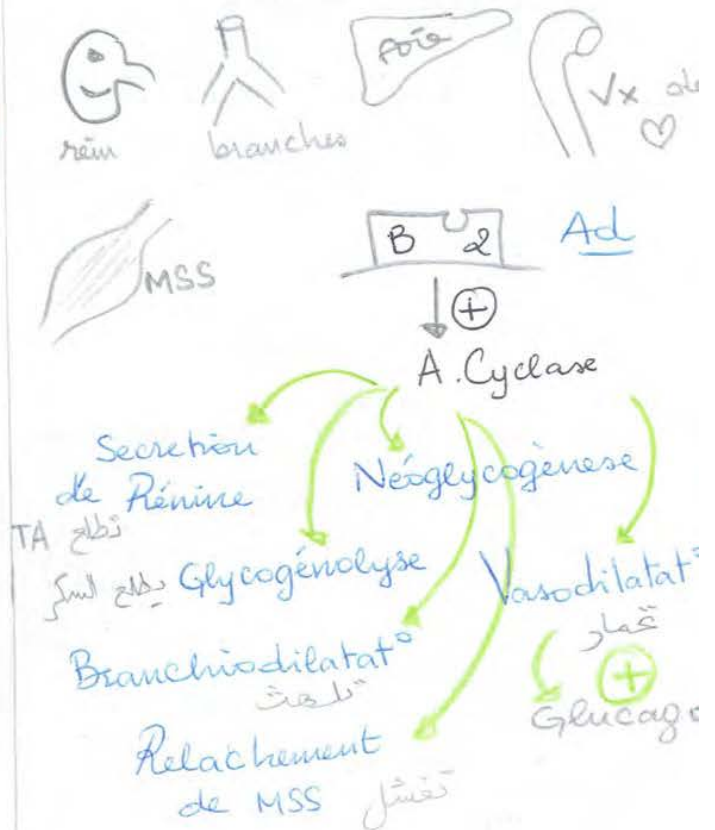 Foie
Vx de
rein
branches
MSS
B 2 Ad
+
A. Cyclase
Secretion
de Rénine
Néoglycogènese
TA تطلع
يطلع السكر Glycogénolyse
Vasodilatat°
تحمار
Branchiodilatat°
تلهث
+
Glucago
Relachement
de MSS تفشل